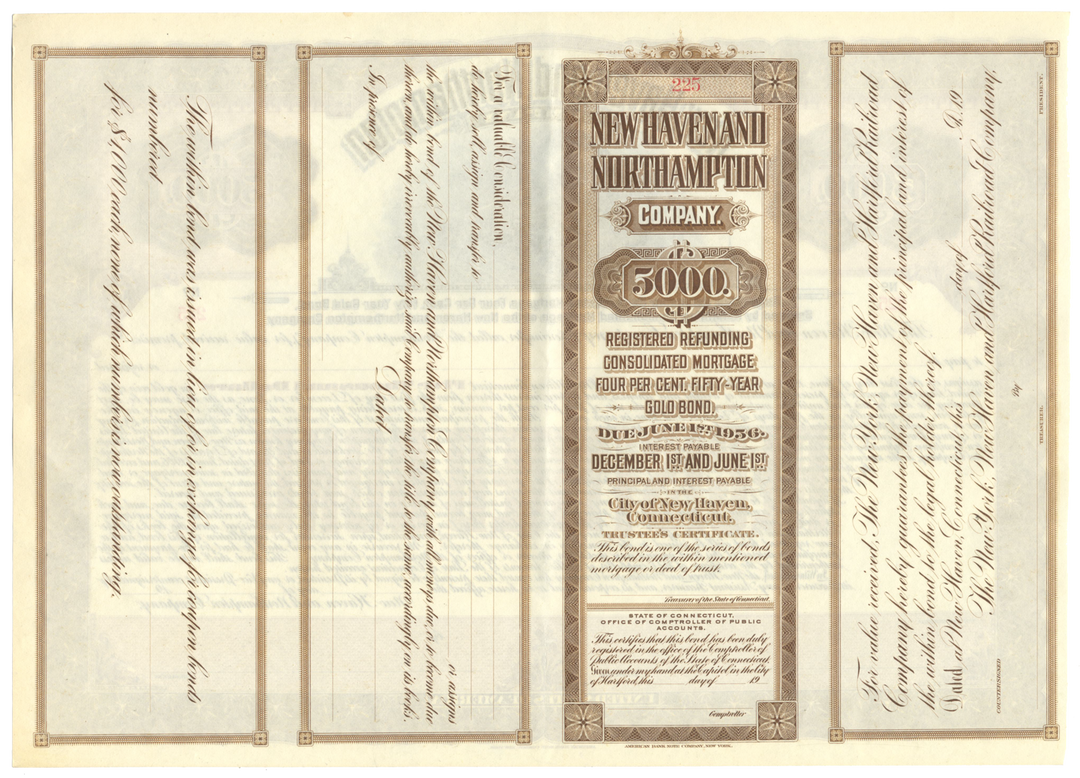 225
NEW HAVEN AND
NORTHAMPTON
COMPANY.
5000.
REGISTERED REFUNDING
CONSOLIDATED MORTGAGE
FOUR PER CENT. FIFTY-YEAR
GOLD BOND.
DUE JUNE 1ST 1956.
INTEREST PAYABLE
DECEMBER 1ST AND JUNE 1ST
PRINCIPAL AND INTEREST PAYABLE
IN THE
City of New Haven,
Connecticut.
TRUSTEE'S CERTIFICATE.
This bond is one of the series of bonds
described in the within mentioned
mortgage or deed of trust.
Treasurer of the State of Connecticut.
STATE OF CONNECTICUT,
OFFICE OF COMPTROLLER OF PUBLIC
ACCOUNTS.
This certifies that this bond has been duly
registered in the office of the Comptroller of
Public Accounts of the State of Connecticut.
Given under my hand at the Capitol in the City
of Hartford, this day of 19
Comptroller
AMERICAN BANK NOTE COMPANY, NEW YORK.
For value received, The New York, New Haven and Hartford Railroad
Company hereby guarantees the payment of the principal and interest of
the within bond to the legal holder thereof.
Dated at New Haven, Connecticut, this day of A.D. 19
The New York, New Haven and Hartford Railroad Company,
By
PRESIDENT.
TREASURER.
COUNTERSIGNED
For a valuable Consideration,
do hereby sell, assign and transfer to
or assigns
the within bond of the New Haven and Northampton Company with all moneys due, or to become due
thereon and do hereby irrevocably authorize said Company to transfer the title to the same, accordingly, on its books.
Dated
In presence of
The within bond was issued in lieu of or in exchange for coupon bonds
numbered
for $1,000 each, none of which numbers is now outstanding.